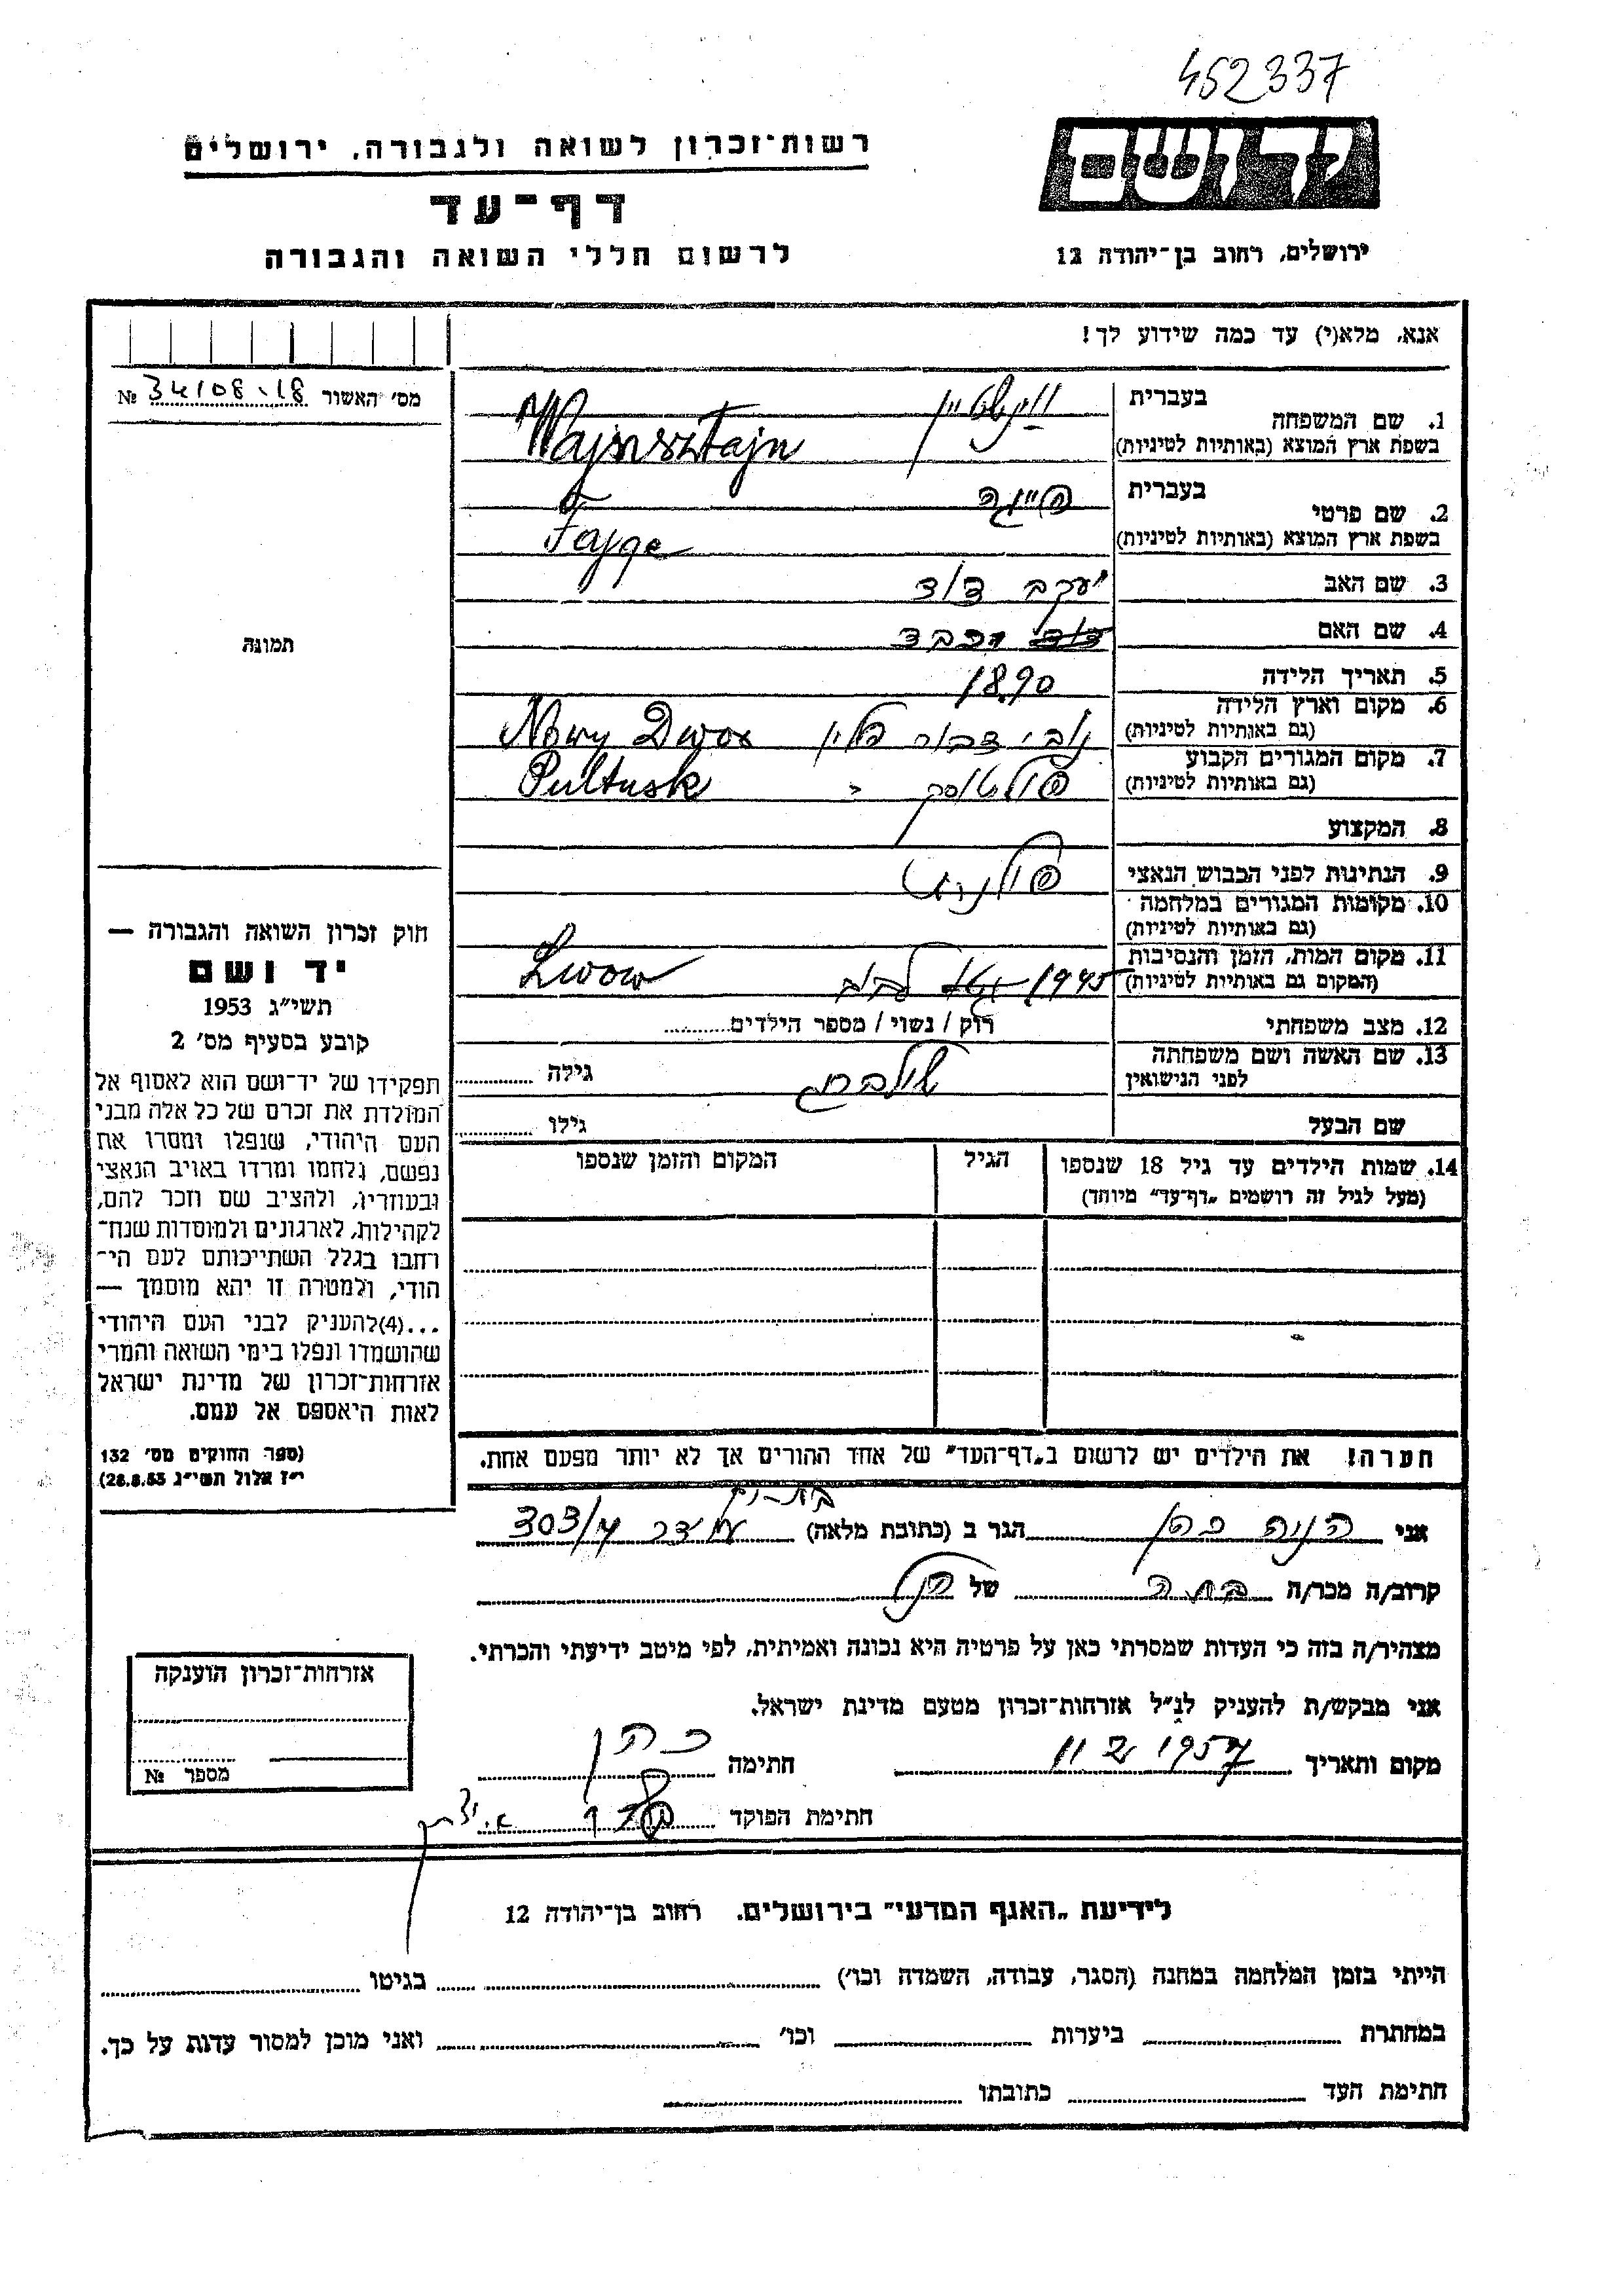 452337
יד ושם
רשות־זכרון לשואה ולגבורה, ירושלים
דף־עד
לרשום חללי השואה והגבורה
ירושלים, רחוב בן־יהודה 12
אנא, מלא(י) עד כמה שידוע לך!
מס׳ האשור 34108.18 №
תמונה
1. שם המשפחה בעברית ויינשטיין
בשפת ארץ המוצא (באותיות לטיניות) Wajnsztajn
2. שם פרטי בעברית פייגה
בשפת ארץ המוצא (באותיות לטיניות) Fajge
3. שם האב יעקב דוד
4. שם האם
5. תאריך הלידה 1890
6. מקום וארץ הלידה (גם באותיות לטיניות) נובי דבור פולין Nowy Dwor
7. מקום המגורים הקבוע (גם באותיות לטיניות) פולטוסק " Pultusk
8. המקצוע
9. הנתינות לפני הכבוש הנאצי פולנית
10. מקומות המגורים במלחמה (גם באותיות לטיניות)
11. מקום המות, הזמן והנסיבות (המקום גם באותיות לטיניות) 1945 גטו לבוב Lwow
12. מצב משפחתי רוק / נשוי / מספר הילדים
13. שם האשה ושם משפחתה לפני הנישואין גילה
שם הבעל גילו
14. שמות הילדים עד גיל 18 שנספו
(מעל לגיל זה רושמים „דף־עד” מיוחד)
הגיל
המקום והזמן שנספו
הערה! את הילדים יש לרשום ב„דף־העד” של אחד ההורים אך לא יותר מפעם אחת.
חוק זכרון השואה והגבורה —
יד ושם
תשי״ג 1953
קובע בסעיף מס׳ 2
תפקידו של יד־ושם הוא לאסוף אל
המולדת את זכרם של כל אלה מבני
העם היהודי, שנפלו ומסרו את
נפשם, נלחמו ומרדו באויב הנאצי
ובעוזריו, ולהציב שם וזכר להם,
לקהילות, לארגונים ולמוסדות שנח־
רחבו בגלל השתייכותם לעם הי־
הודי, ולמטרה זו יהא מוסמך —
...(4)להעניק לבני העם היהודי
שהושמדו ונפלו בימי השואה והמרי
אזרחות־זכרון של מדינת ישראל
לאות היאספם אל עמם.
(ספר החוקים מס׳ 132
י״ז אלול תשי״ג 28.8.53)
בת-ים
אני חנה כהן הגר ב (כתובת מלאה) 303/4
קרוב/ה מכר/ה בתה של הנ״ל
מצהיר/ה בזה כי העדות שמסרתי כאן על פרטיה היא נכונה ואמיתית, לפי מיטב ידיעתי והכרתי.
אני מבקש/ת להעניק לנ״ל אזרחות־זכרון מטעם מדינת ישראל.
מקום ותאריך 11 2 1957 חתימה כהן
חתימת הפוקד
אזרחות־זכרון הוענקה
מספר №
לידיעת „האגף המדעי” בירושלים. רחוב בן־יהודה 12
הייתי בזמן המלחמה במחנה (הסגר, עבודה, השמדה וכו׳) בגיטו
במחתרת ביערות וכו׳ ואני מוכן למסור עדות על כך.
חתימת העד כתובתו